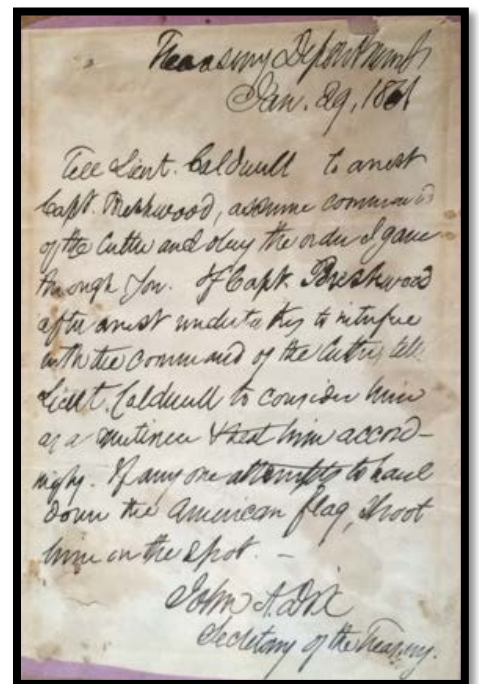 Treasury Department
Jan. 29, 1861
Tell Lieut. Caldwell to arrest
Capt. Breshwood, assume command
of the Cutter and obey the order I gave
through you. If Capt. Breshwood
after arrest undertakes to interfere
with the command of the Cutter, tell
Lieut. Caldwell to consider him
as a mutineer & treat him accord-
ingly. If any one attempts to haul
down the American flag, shoot
him on the spot. –
John A. Dix
Secretary of the Treasury.